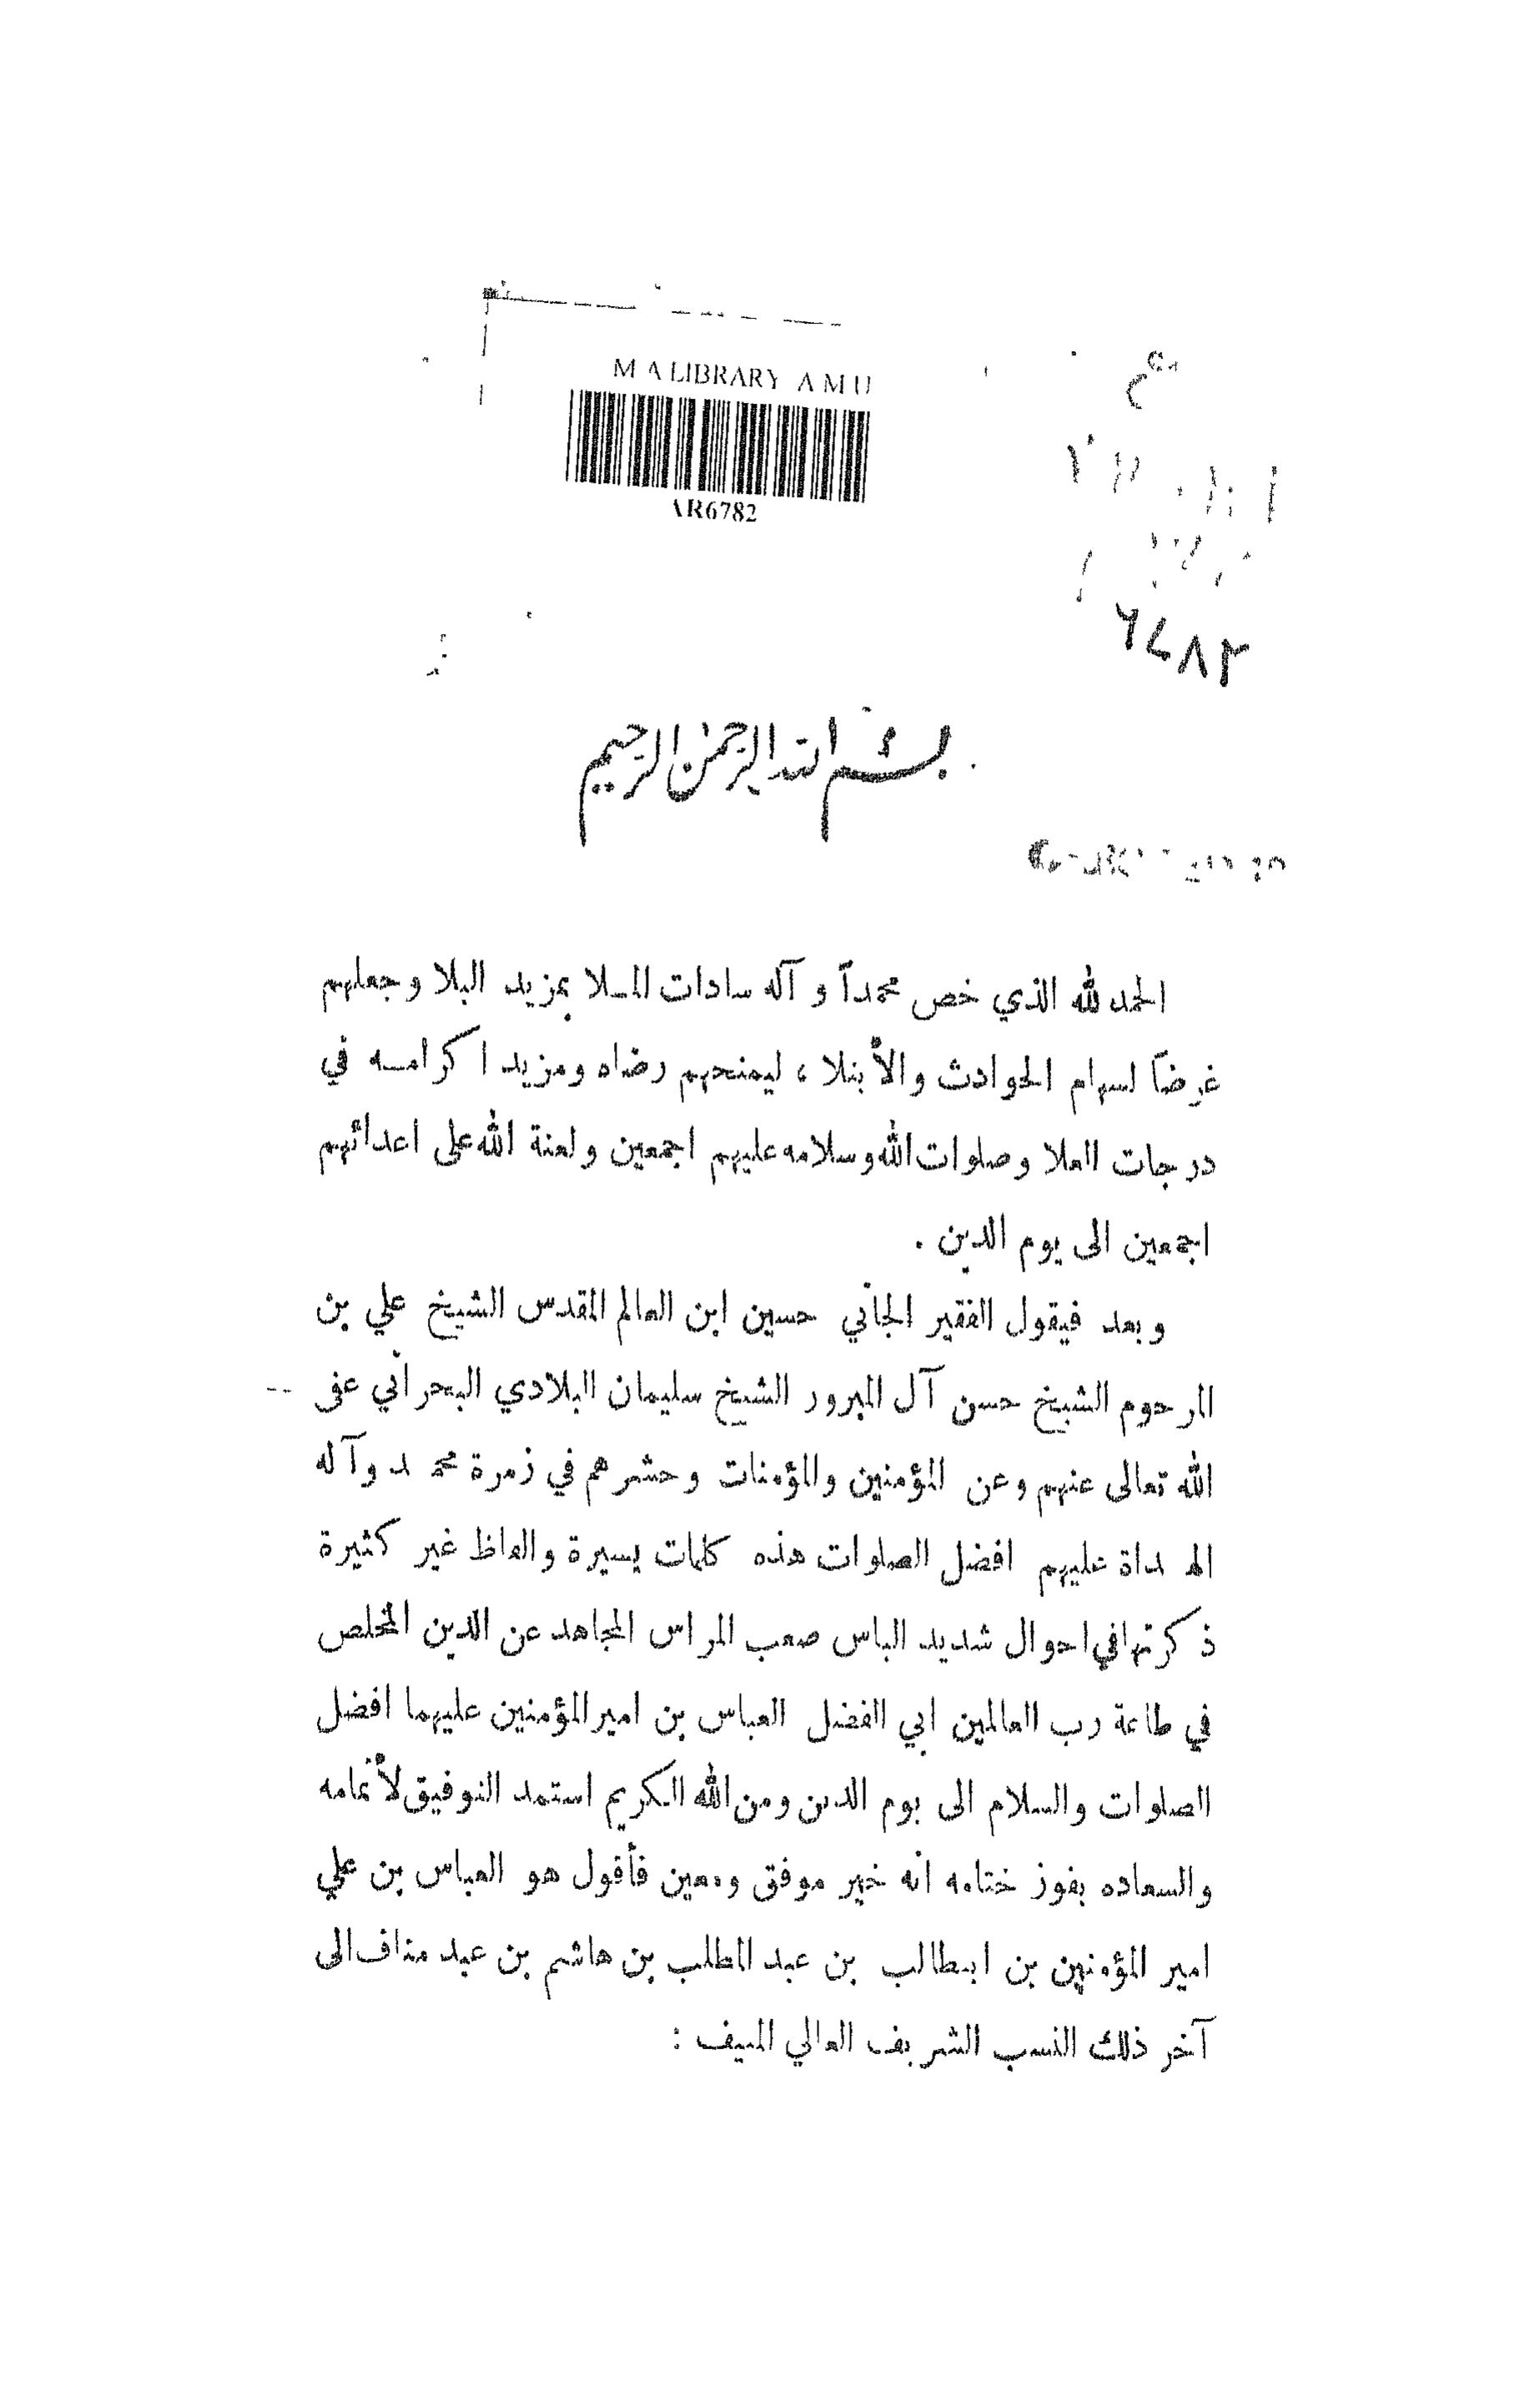 M A LIBRARY A M U
AR6782
٦٧٨٢
بسم الله الرحمن الرحيم
الحمد لله الذي خص محمداً و آله سادات الملا بمزيد البلا وجعلهم
غرضاً لسهام الحوادث والأبتلا ، ليمنحهم رضاه ومزيد اكرامه في
درجات العلا وصلوات الله وسلامه عليهم اجمعين ولعنة الله على اعدائهم
اجمعين الى يوم الدين .
وبعد فيقول الفقير الجاني حسين ابن العالم المقدس الشيخ علي بن
المرحوم الشيخ حسن آل المبرور الشيخ سليمان البلادي البحراني عفى
الله تعالى عنهم وعن المؤمنين والمؤمنات وحشرهم في زمرة محمد وآله
الهداة عليهم افضل الصلوات هذه كلمات يسيرة والفاظ غير كثيرة
ذكرتها في احوال شديد الباس صعب المراس المجاهد عن الدين المخلص
في طاعة رب العالمين ابي الفضل العباس بن امير المؤمنين عليهما افضل
الصلوات والسلام الى يوم الدين ومن الله الكريم استمد التوفيق لأتمامه
والسعاده بفوز ختامه انه خير موفق ومعين فأقول هو العباس بن علي
امير المؤمنين بن ابيطالب بن عبد المطلب بن هاشم بن عبد مناف الى
آخر ذلك النسب الشريف العالي المنيف :